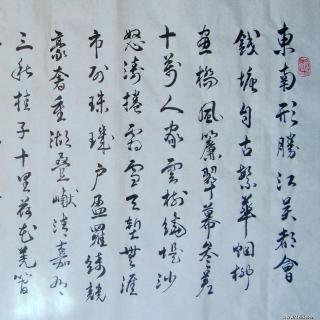 東南形勝江吴都會
錢塘自古繁華烟柳
畫橋風簾翠幕參差
十萬人家雲樹繞堤沙
怒濤捲霜雪天塹無涯
市列珠璣户盈羅綺競
豪奢重湖疊巘清嘉有
三秋桂子十里荷花羌管